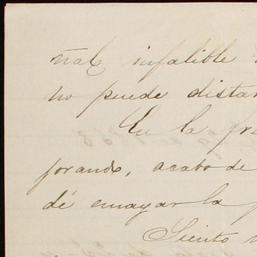 ñal infalible
no puede distar
En la fra
porando, acabo de
dé ensayar la p
Siento n